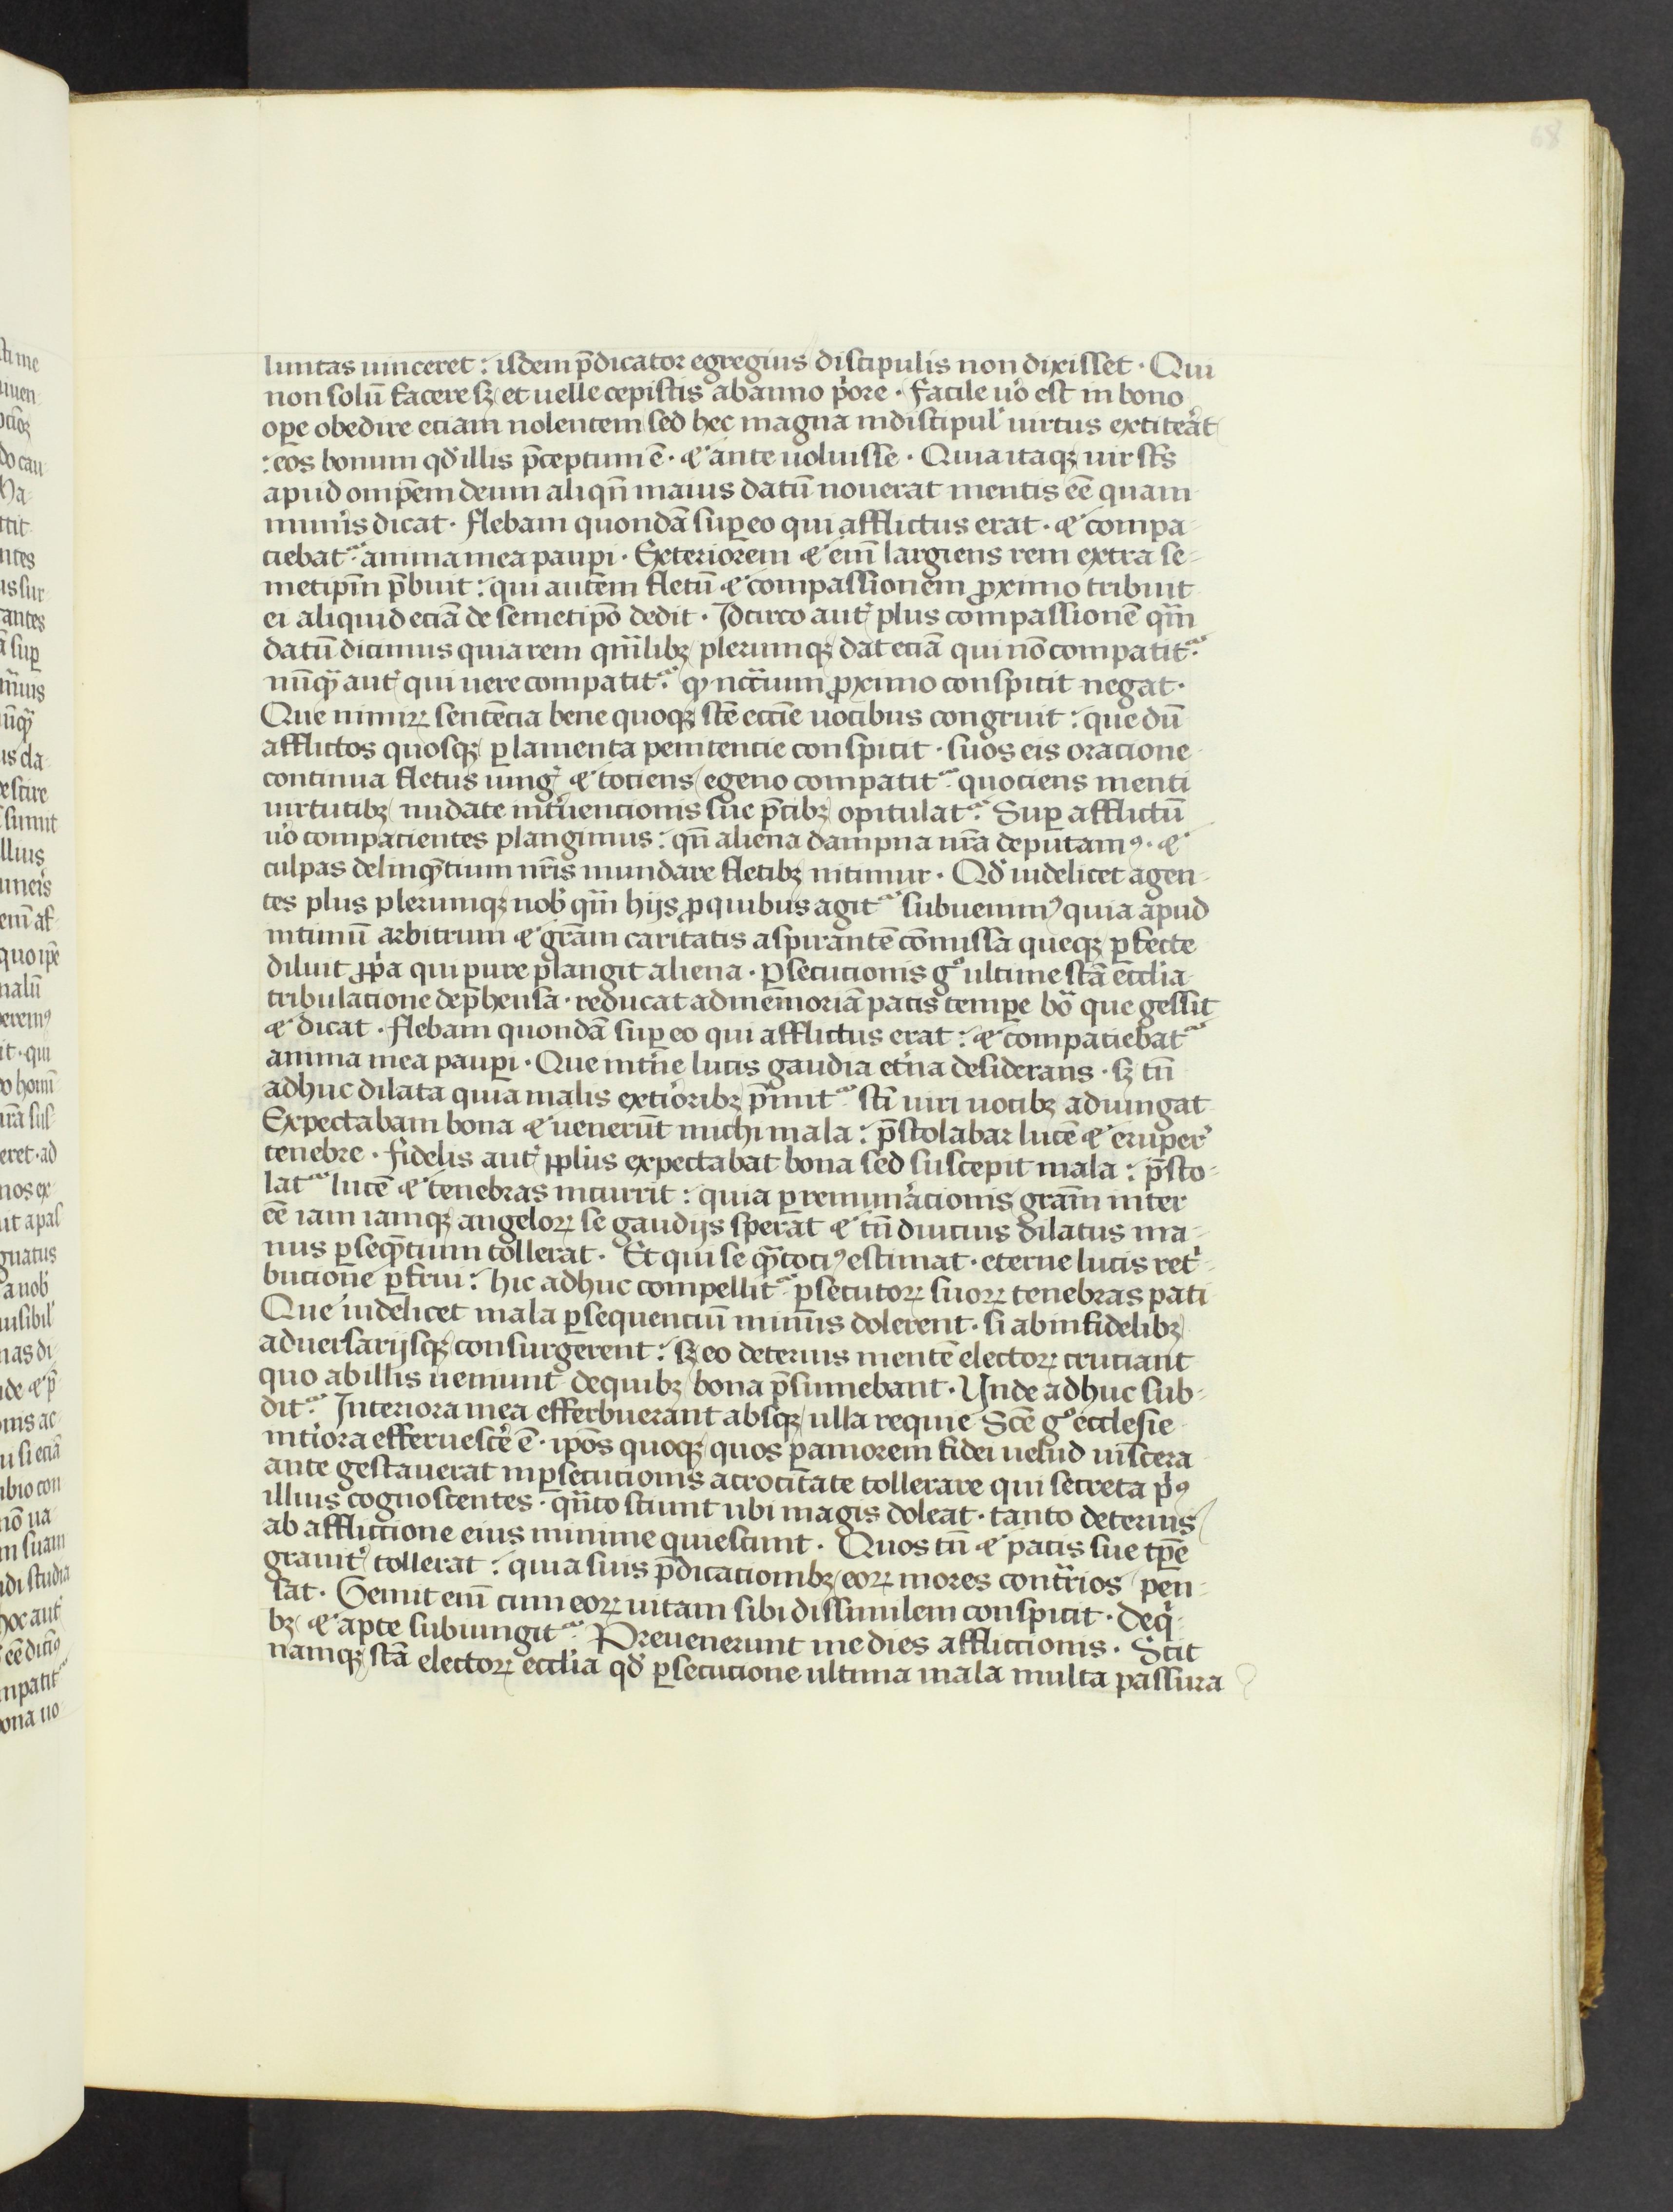 68
luntas uinceret : isdem p̄dicator egregius discipulis non dixisset · Qui
non solū facere sꝫ et uelle cepistis ab anno p͛ore · facile u͛o est in bono
ope obedire eciam nolentem sed hec magna in discipul͛ uirtus extiterāt
: eos bonum qd͛ illis p̄ceptum ē · ⁊ ante uoluisse · Quia itaqꝫ uir sc̄s
apud omp̄em deum aliqn̄ maius datū nouerat mentis eē̄ quam
mun͛is dicat · flebam quondā sup eo qui afflictus erat · ⁊ compa-
ciebat᷑ anima mea paupi · Exteriorem ⁊ eni̅ largiens rem extra se-
metip̄m p̄buit : qui autem fletū ⁊ compassionem ꝓximo tribuit
ei aliquid eciā de semetip̄o dedit · Jdcirco aut͛ plus compassionē qm̄
datū dicimus quia rem qm̄libꝫ plerumqꝫ dat eciā qui nō compatit᷑
nūqᷓ aut͛ qui uere compatit᷑ qꝫ nc̄cium ꝓximo conspicit negat ·
Que nimiꝝ sentencia bene quoqꝫ sc̄e eccīe uocibus congruit : que dū
afflictos quosqꝫ ꝑ lamenta penitencie conspicit · suos eis oracione
continua fletus iung͛ ⁊ tociens egeno compatit᷑ quociens menti
uirtutibꝫ nudate int͛uencionis sue p̄cibꝫ opitulat᷑ Suꝑ afflictū
u͛o compacientes plangimus : qn̄ aliena dampna nr̄a deputamꝰ · ⁊
culpas delinqᷓtium nr̄is mundare fletibꝫ nitimur · Qd͛ uidelicet agen-
tes plus plerumqꝫ nob͛ qm̄ hijs ꝓ quibus agit᷑ subuenimꝰ quia apud
intimū arbitrum ⁊ gr̄am caritatis aspirantē cōmissa queqꝫ ꝑfecte
diluit ꝓp͛a qui pure plangit aliena · ꝑsecucionis gͦ ultime sc̄a eccl͛ia
tribulacione dep̄hensa · reducat ad memoriā pacis tempe bōᷓ que gessit
⁊ dicat · flebam quondā suꝑ eo qui afflictus erat : ⁊ compaciebat᷑
anima mea pauꝑi · Que int͛ne lucis gaudia et͛na desiderans · sꝫ tn̄
adhuc dilata quia malis ext͛ioribꝫ p̄mit᷑ sc̄i uiri uocibꝫ adiungat
Expectabam bona ⁊ uenerūt michi mala : p̄stolabar lucē ⁊ eruper͛
tenebre · fidelis aut͛ ꝓplūs expectabat bona sed suscepit mala : p̄sto-
lat᷑ lucē ⁊ tenebras incurrit : quia ꝑ remun͛acionis gr̄am inter
eē̄ iam iamqꝫ angeloꝝ se gaudijs sperat ⁊ tn̄ diucius dilatus ma-
nus ꝑseqᷓtium tollerat · Et qui se qᷓtociꝰ estimat · eterne lucis ret͛-
bucione ꝑfrui : hic adhuc compellit᷑ ꝑsecutoꝝ suoꝝ tenebras pati
Que uidelicet mala ꝑsequenciū minus dolerent · si ab infidelibꝫ
aduersarijsqꝫ consurgerent : sꝫ eo deterius mentē electoꝝ cruciant
quo ab illis ueniunt de quibꝫ bona p̄sumebant · Vnde adhuc sub-
dit᷑ Interiora mea efferbuerant absqꝫ ulla requie Sc̄e gͦ ecclesie
int͛iora efferuesc͛e ē · ip̄os quoqꝫ quos ꝑ amorem fidei uelud uiscera
ante gestauerat in ꝑsecucionis atrocitate tollerare qui secreta p͛ꝰ
illius cognoscentes · qn̄to sciunt ubi magis doleat · tanto deterius
ab affliccione eius minime quiescunt · Quos tn̄ ⁊ pacis sue tꝑe
grauit͛ tollerat : quia suis p̄dicacionibꝫ eoꝝ mores contͬrios pen-
sat · Gemit eni̅ cum eoꝝ uitam sibi dissimilem conspicit · de q͛-
bꝫ ⁊ apte subiungit᷑ Preuenerunt me dies affliccionis · Scit
namqꝫ sc̄a electoꝝ eccl͛ia qd͛ ꝑsecucione ultima mala multa passura